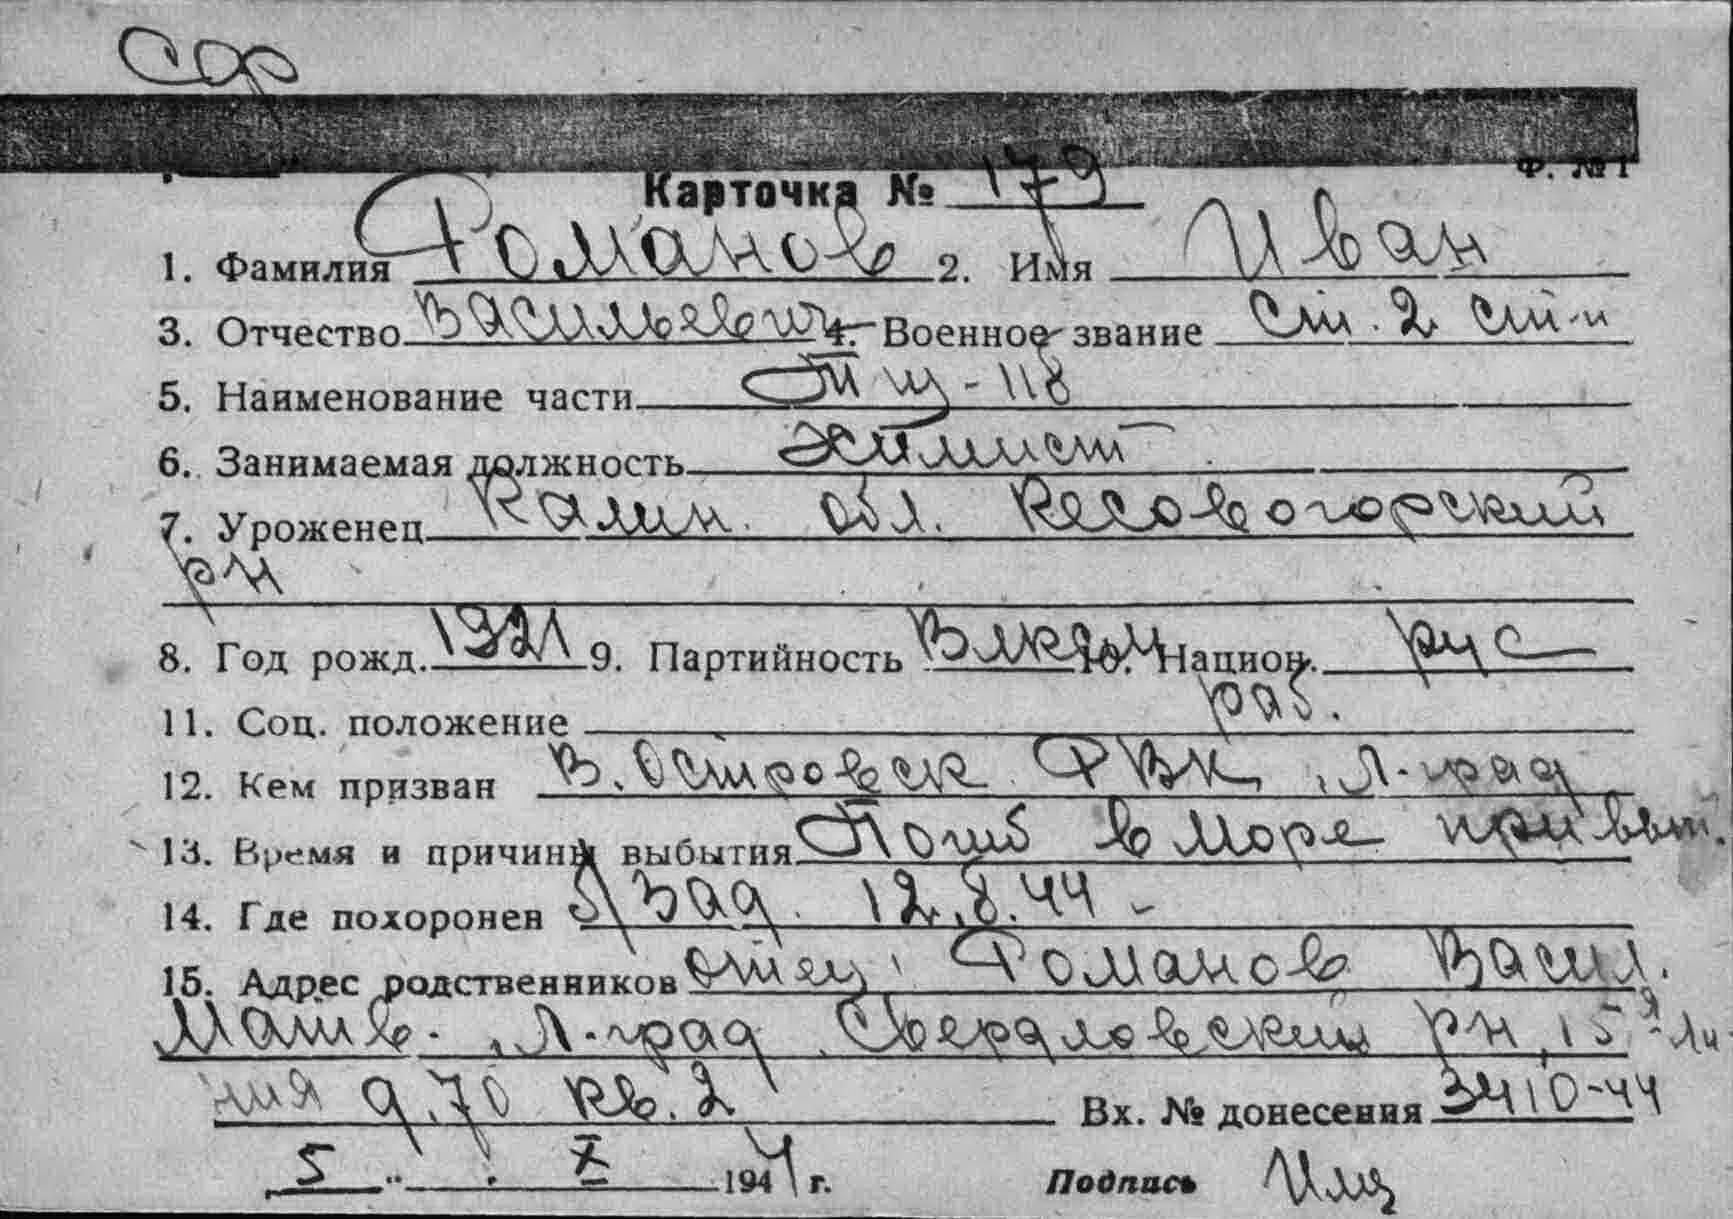 Ф. № 1
Карточка № 179
1. Фамилия Романов 2. Имя Иван
3. Отчество Васильевич 4. Военное звание ст. 2 ст-и
5. Наименование части Тщ-118
6. Занимаемая должность химист
7. Уроженец Калин. обл. Кесовогорский
рн
8. Год рожд. 1921 9. Партийность Влксм 10. Национ. рус
11. Соц. положение раб.
12. Кем призван В. Островск РВК, Л-град
13. Время и причины выбытия Погиб в море при вып.
14. Где похоронен б/зад. 12.8.44 -
15. Адрес родственников отец: Романов Васил.
Матв., Л-град Свердловский рн, 15я Ли
ния д. 70 кв. 2 Вх. № донесения 3410-44
5 X 1944 г. Подпись